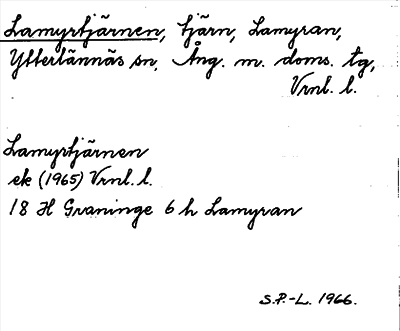 Lamyrtjärnen, tjärn, Lamyran,
Ytterlännäs sn, Ång. m. doms. tg,
Vrnl. l.
Lamyrtjärnen
ek (1965) Vrnl. l.
18 H Graninge 6 h Lamyran
S.P.-L. 1966.